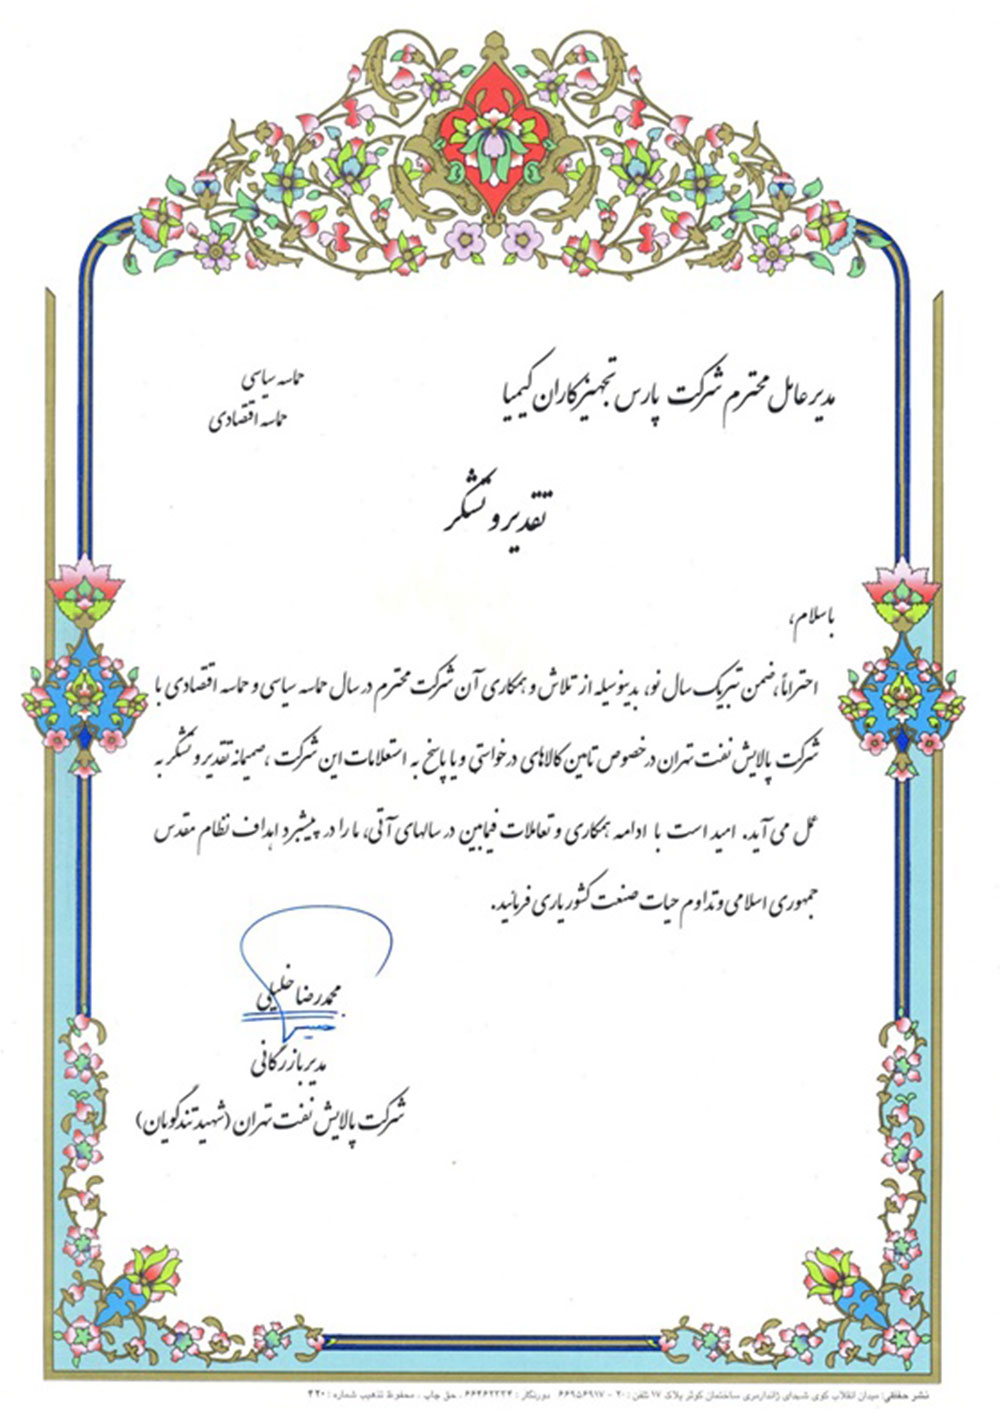 مدیرعامل محترم شرکت پارس تجهیزکاران کیمیا
حماسه سیاسی
حماسه اقتصادی
تقدیر و تشکر
باسلام،
احتراماً، ضمن تبریک سال نو، بدینوسیله از تلاش و همکاری آن شرکت محترم در سال حماسه سیاسی و حماسه اقتصادی با
شرکت پالایش نفت تهران در خصوص تامین کالاهای درخواستی و یا پاسخ به استعلامات این شرکت ، صمیمانه تقدیر و تشکر به
عمل می آید. امید است با ادامه همکاری و تعاملات فیمابین در سالهای آتی، ما را در پیشبرد اهداف نظام مقدس
جمهوری اسلامی و تداوم حیات صنعت کشور یاری فرمائید.
محمدرضا خلیلی
مدیر بازرگانی
شرکت پالایش نفت تهران (شهید تندگویان)
نشر حقیقی: میدان انقلاب کوی شهدای ژاندارمری ساختمان کوثر پلاک ۱۷ تلفن : ۲۰ - ۶۶۹۵۶۹۱۷ دورنگار : ۶۶۴۶۲۲۳۴ . حق چاپ . محفوظ تذهیب شماره : ۴۲۰